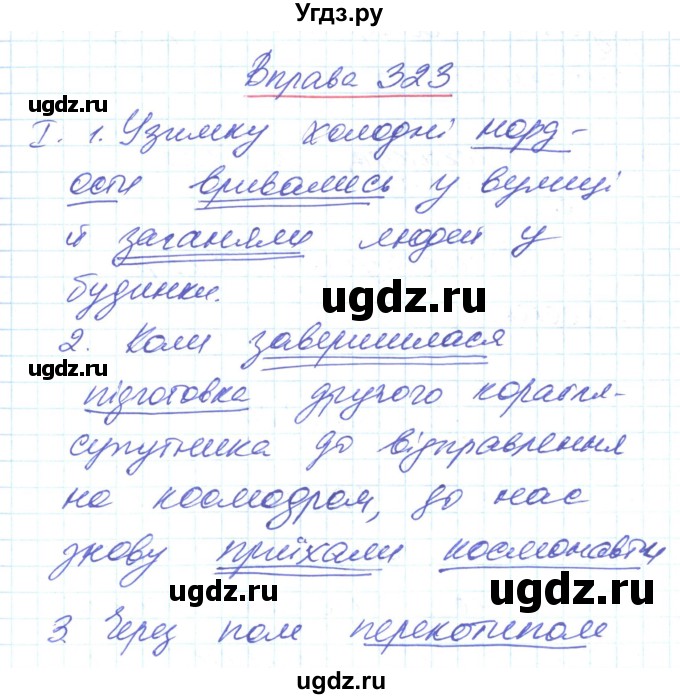 Угдз.ру
Вправа 323
ugdz.ru ugdz.ru
I. 1. Узимку холодні норд-
ости вривались у вулиці
й заганяли людей у
будинки.
ugdz.ru
2. Коли завершилася
ugdz.ru
підготовка другого корабля-
супутника до відправлення
на космодром, до нас
знову приїхали космонавти
ugdz.ru ugdz.ru
3. Через поле перекотиполе
ugdz.ru